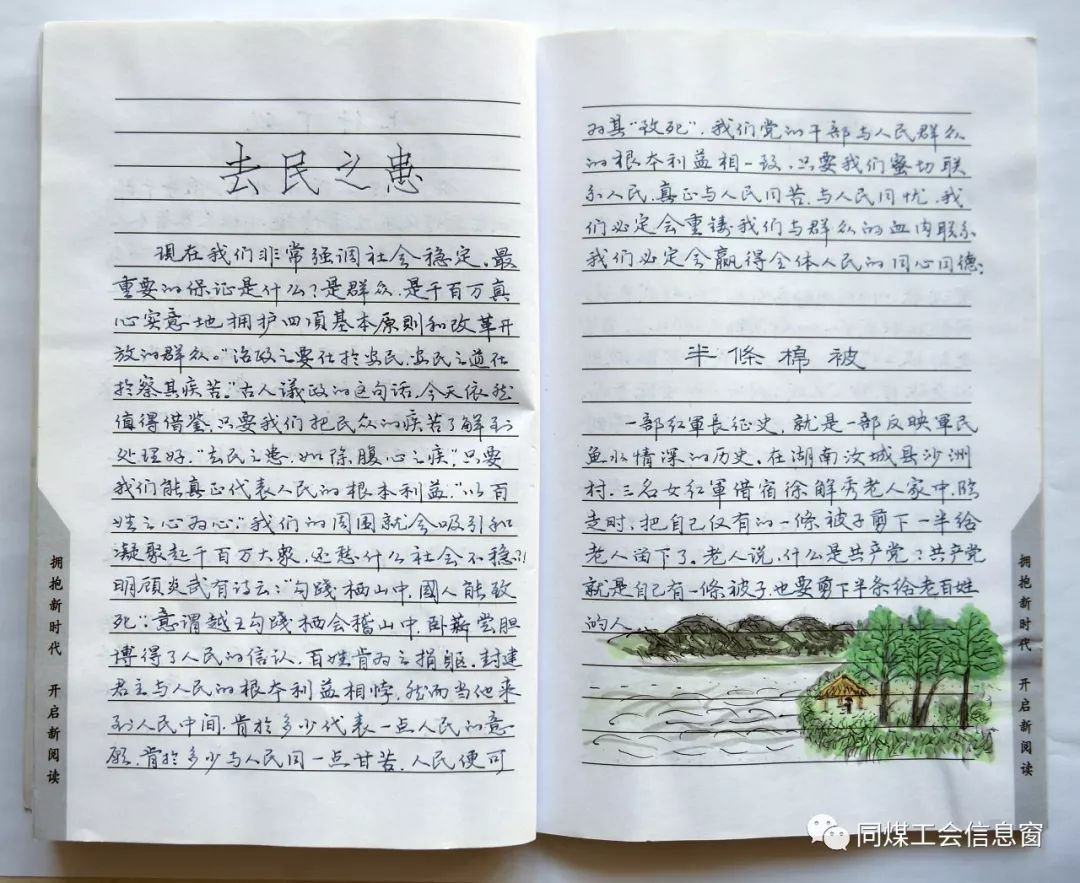 去民之患
现在我们非常强调社会稳定。最
重要的保证是什么？是群众，是千百万真
心实意地拥护四項基本原则和改革开
放的群众。“治政之要在扵安民，安民之道在
扵察其疾苦。”古人議政的这句话，今天依然
值得借鉴，只要我们把民众的疾苦了解到
处理好，“去民之患，如除腹心之疾”，只要
我们能真正代表人民的根本利益，“以百
姓之心为心”我们的周围就会吸引和
凝聚起千百万大衆，还愁什么社会不稳？！
明顾炎武有诗云：“勾践栖山中，國人能致
死”，意谓越王勾践栖会稽山中，卧薪尝胆
博得了人民的信认，百姓肯为之捐躯。封建
君主与人民的根本利益相悖，然而当他来
到人民中间，肯扵多少代表一点人民的意
愿，肯扵多少与人民同一点甘苦，人民便可
为其“致死”，我们党的干部与人民群众
的根本利益相一致，只要我们密切联
系人民，真正与人民同苦，与人民同忧，我
们必定会重铸我们与群众的血肉联系
我们必定会赢得全体人民的同心同德；
半條棉被
一部红軍長征史，就是一部反映軍民
鱼水情深的历史。在湖南汝城县沙洲
村，三名女红軍借宿徐解秀老人家中，临
走时，把自己仅有的一條被子剪下一半给
老人留下了。老人说，什么是共产党？共产党
就是自己有一條被子，也要剪下半条给老百姓
的人
拥抱新时代 开启新阅读
拥抱新时代 开启新阅读
同煤工会信息窗